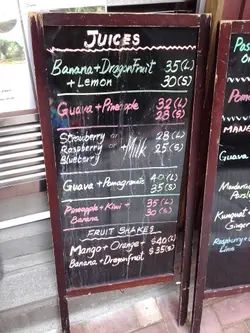 JUICES
Banana + DragonFruit 35(L)
+ Lemon 30(S)
Guava + Pineapple 32(L)
28(S)
Strawberry or 28(L)
Raspberry or +Milk 25(S)
Blueberry
Guava + Pomagranate 40(L)
35(S)
Pineapple + Kiwi + 35(L)
Banana 30(S)
FRUIT SHAKES
Mango + Orange + $40(L)
Banana + Dragonfruit $35(S)
Guava
Ginger
Lime